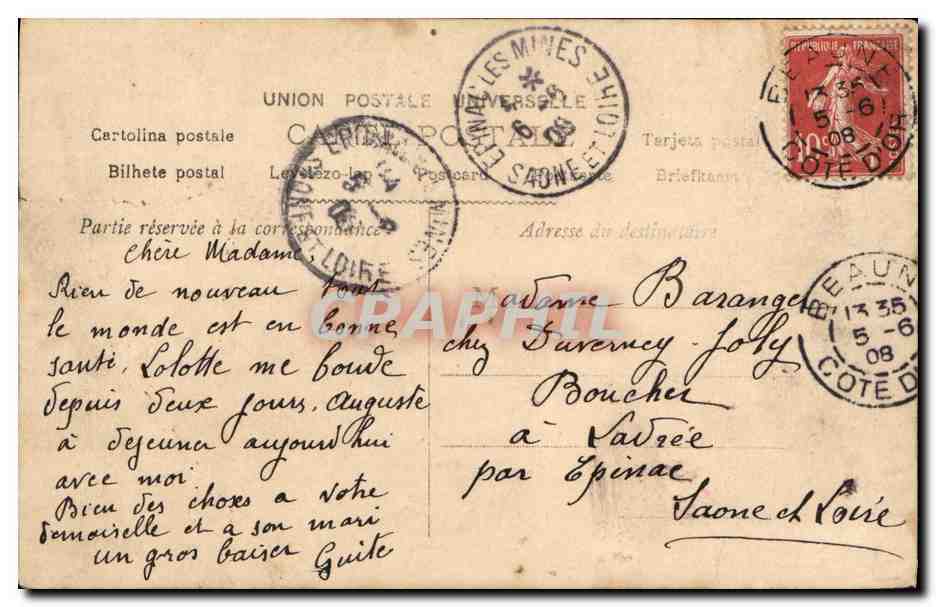 UNION POSTALE UNIVERSELLE
CARTE POSTALE
Cartolina postale
Tarjeta postal
Bilhete postal
Levelezo-lap
Postcard
Briefkaart
EPINAC-LES-MINES
SAONE ET LOIRE
6 -6
08
LOIRE
REPUBLIQUE FRANÇAISE
10c
BEAUNE
13 35
5 -6
08
COTE D'OR
BEAUN
13 35
5 -6
08
COTE D
Partie réservée à la correspondance
Adresse du destinataire
Chère Madame,
Rien de nouveau tout
le monde est en bonne
santé, Lolotte me boude
depuis deux jours. Auguste
à dejeuner aujourd'hui
avec moi
Bien des choxes a votre
demoiselle et a son mari
un gros baiser Guite
Madame Baranger
chez Duverney-Joly
Boucher
à Sadrée
par Epinac
Saone et Loire
CRAPHIL